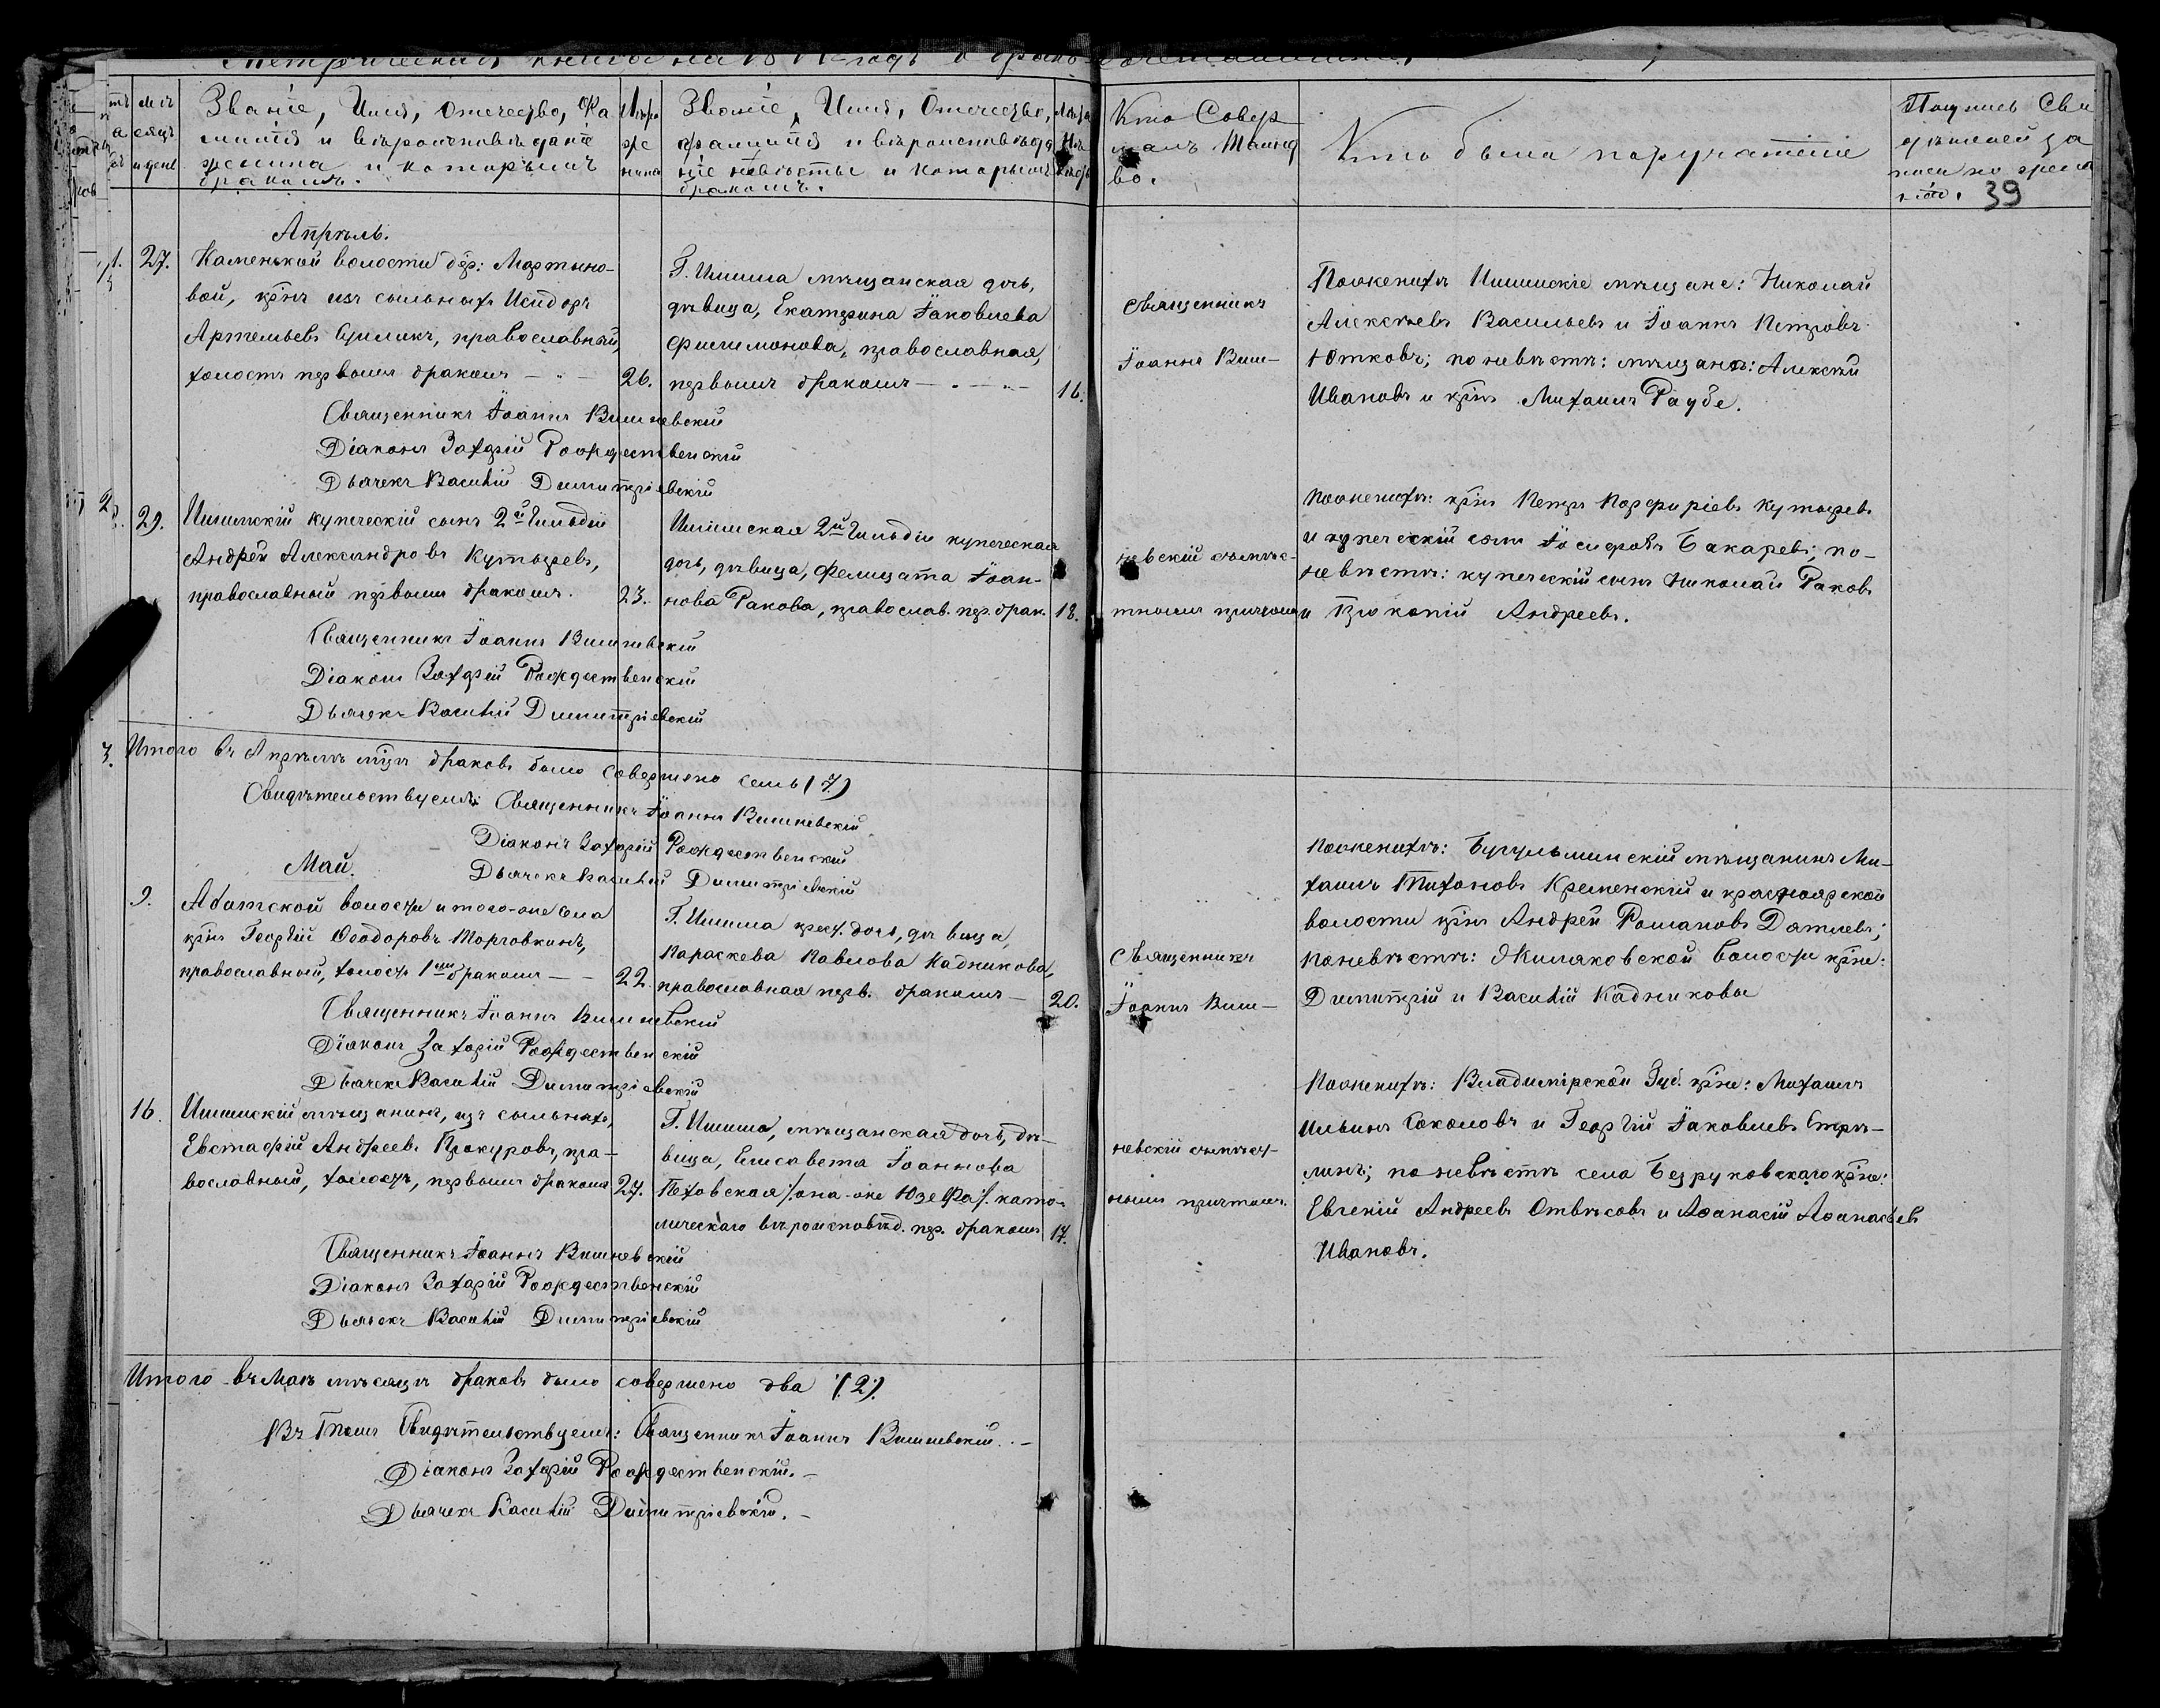 Метрическая книга на 18 годъ о бракосочетавшихся
мѣсяцъ и день
Званіе, Имя, Отчество, Фамилія и вѣроисповѣданіе жениха и которымъ бракомъ.
Званіе, Имя, Отчество, фамилія и вѣроисповѣданіе невѣсты и которымъ бракомъ.
Кто Совершалъ Таинство.
Кто были поручители
Подпись свидѣтелей записи по желанію. 39
Апрѣль.
27.
Каменской волости дер: Мартыно-
вой, крѣн изъ сыльныхъ Исидоръ
Артемьевъ православный,
холостъ первымъ бракомъ — 26.
Г. Ишима мѣщанская дочь,
дѣвица, Екатерина Іаковлева
Филимонова, православная,
первымъ бракомъ — 16.
Священникъ
Іоаннъ Виш-
По женихѣ Ишимскіе мѣщане: Николай
Алексѣевъ Васильевъ и Іоаннъ Петровъ
Ютковъ; по невѣстѣ: мѣщанѣ: Алексѣй
Ивановъ и крѣн Михаилъ Раубе.
Священникъ Іоаннъ Вишневскій
Діаконъ Захарій Рождественскій
Дьячекъ Василій Димитріевскій
29.
Ишимскій купеческій сынъ 2й Гильдіи
Андрей Александровъ Кутыревъ,
православный первымъ бракомъ. 23.
Ишимская 2й Гильдіи купеческая
дочь, дѣвица, Фелицата Іоан-
нова Ракова, православ. пер. брак. 18.
невскій съ мѣс-
тнымъ причтомъ
По женихѣ: крѣн Петръ Порфиріевъ Кутыревъ
и купеческій сынъ Іосифовъ Бакаревъ; по-
невѣстѣ: купеческій сынъ Николай Раковъ
и Прокопій Андреевъ.
Священникъ Іоаннъ Вишневскій
Діаконъ Захарій Рождественскій
Дьячекъ Василій Димитріевскій
Итого въ Апрѣлѣ мѣцѣ браковъ было совершено семь (7)
Свидѣтельствуемъ: Священникъ Іоаннъ Вишневскій
Діаконъ Захарій Рождественскій
Дьячекъ Василій Димитріевскій
Май.
9.
Абатской волости и того-же села
крѣн Георгій Ѳеодоровъ Торговкинъ,
православный, холостъ 1мъ бракомъ — 22.
Г. Ишима крест. дочь, дѣвица,
Параскева Павлова Кадникова,
православная перв. бракомъ — 20.
Священникъ
Іоаннъ Виш-
По женихѣ: Бугульминскій мѣщанинъ Ми-
хаилъ Тихоновъ Кременскій и красноярской
волости крѣн Андрей Романовъ Датиевъ;
по невѣстѣ: Жиляковской волости крѣне:
Димитрій и Василій Кадниковы
Священникъ Іоаннъ Вишневскій
Діаконъ Захарій Рождественскій
Дьячекъ Василій Димитріевскій
16.
Ишимскій мѣщанинъ, изъ сыльныхъ,
Евстафій Андреевъ Прокуровъ, пра-
вославный, холостъ, первымъ бракомъ 27.
Г. Ишима, мѣщанская дочь, дѣ-
вица, Елисавета Іоаннова
Пеховская /она-же Юзефа/ като-
лическаго вѣроисповѣд. пер. бракомъ 17.
невскій съ мѣст-
нымъ причтомъ.
По женихѣ: Владимірской Губ. крѣне: Михаилъ
Ильинъ Соколовъ и Георгій Іаковлевъ Стрѣ-
линъ; по невѣстѣ села Безруковскаго крѣне:
Евгеній Андреевъ Отвѣсовъ и Аѳанасій Аѳанасьевъ
Ивановъ.
Священникъ Іоаннъ Вишневскій
Діаконъ Захарій Рождественскій
Дьячекъ Василій Димитріевскій
Итого въ Маѣ мѣсяцѣ браковъ было совершено два /2/.
Въ томъ Свидѣтельствуемъ: Священникъ Іоаннъ Вишневскій. —
Діаконъ Захарій Рождественскій. —
Дьячекъ Василій Димитріевскій. —